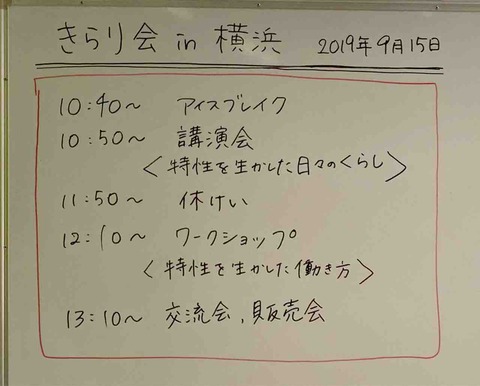 きらり会 in 横浜 2019年9月15日
10:40〜 アイスブレイク
10:50〜 講演会
<特性を生かした日々のくらし>
11:50〜 休けい
12:10〜 ワークショップ
<特性を生かした働き方>
13:10〜 交流会,販売会